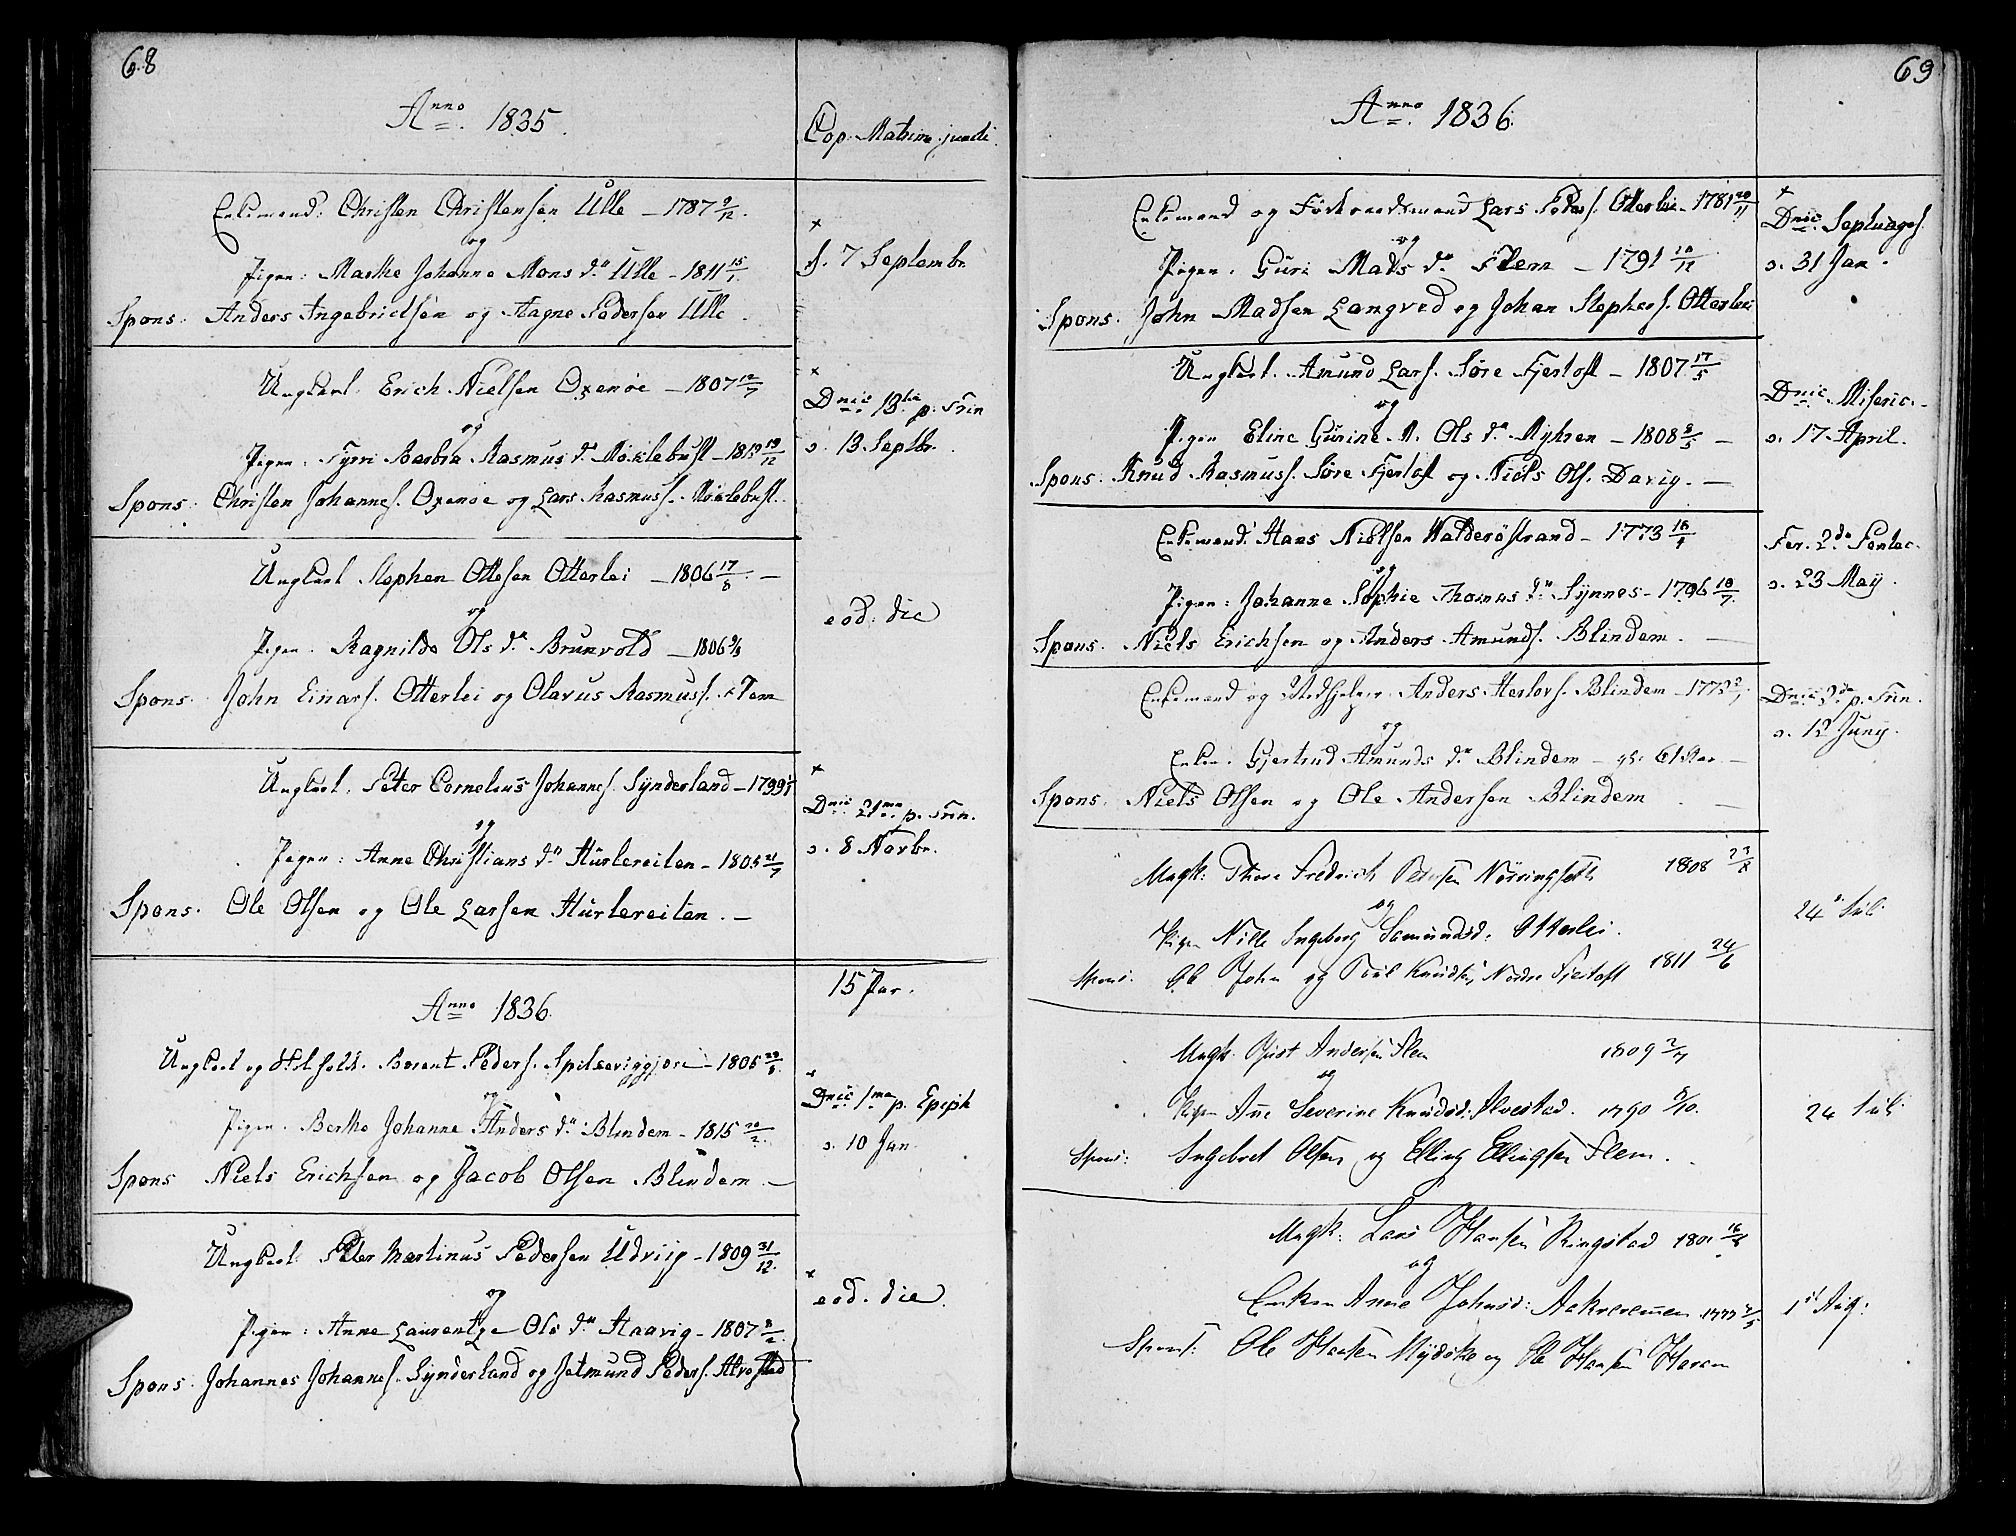 68
Anno 1835.
Cop. Matrim. juncti.
Enkemand: Christen Christensen Ulle – 1787 9/12.
og
Pigen: Marthe Johanne Mons dr Ulle – 1811 15/1.
Spons: Anders Ingebrictsen og Aagne Pedersen Ulle.
+
d. 7 Septembr.
Ungkarl Erich Nielsen Oxenöe – 1807 12/7
og
Pigen: Barbra Rasmus dr Röklebust – 18 19/12
Spons: Christen Johannes. Oxenöe og Lars Rasmuss. Röklebust.
+
Dnic 13tia p. Trin
d. 13 Septbr.
Ungkarl Stephen Ottesen Otterlei – 1806 17/8. –
og
Pigen: Ragnilde Ols dr Brunvold – 1806
Spons: John Einars. Otterlei og Olavus Rasmuss. Flem
eod. die
Ungkarl. Peter Cornelius Johannes. Synderland – 1799
og
Pigen: Anne Christians dr Hurlereiten – 1805 21/7
Spons. Ole Olsen og Ole Larsen Hurlereiten. –
+
Dnic 21ma p. Trin.
d. 8 Novbr.
15 Par.
Anno 1836.
Ungkarl og Berent Peders. – 1806
og
Pigen. Berthe Johanne Anders dr Blindem – 1815 20/2.
Spons Niels Erichsen og Jacob Olsen Blindem –
+
Dnic 1ma p. Epiph
d. 10 Jan
Ungkarl Peter Martinus Pedersen Udviig – 1809 31/12.
og
Pigen: Anne Laurentze Ols dr Haavig – 1807
Spons. Johannes Johannes. Synderland og Jetmund Peders. Alvestad
+
eod. die.
69
Anno 1836.
Enkemand og Forliigelsesmand Lars Peders. Otterlei – 1781 20/11
og
Pigen. Guri Mads dr Flem – 1791 /12
Spons. John Madsen Langved og Johan Stephens. Otterlei
+
Dnic. Septuages.
d. 31 Jan.
Ungkarl. Amund Lars. Söre Fjertoft – 1807 17/5
og
Pigen Eline Gurine Ols dr Myhren – 1808 /5 –
Spons: Knud Rasmuss. Söre Fjertoft og Niels Ols. Davig. –
Dnic. Miseric. –
d. 17 April.
Enkemand: Hans Nielsen Walderöstrand – 1773
og
Pigen: Johanne Sophie Thomas dr Synnes – 1796 18/7.
Spons. Niels Erichsen og Anders Amunds. Blindem. –
Fer. 2da Pentec.
d. 23 Maij.
Enkemand og Medhjelper Anders Herlovs. Blindem – 177
og
Enken. Gjertrud Amunds dr Blindem – gl. 61 Aar. –
Spons. Niels Olsen og Ole Andersen Blindem. –
Dnic. p. Trin.
d. 12 Junij.
Ungk: Thore Fredrich Petersen 1808 23/8
og
Pigen Nille Ingeborg Samundsd: Otterlei.
Spons: Ole John og Poul Knudsen Nordre Fiertoft 1811 24/6
24de Juli
Ungk: Andersen Flem 1809 2/7
og
Pigen Ane Severine Knudsd: Alvestad. 1790 8/10.
Spons: Ingebret Olsen og Elling Ellingsen Flem.
24 Juli
Ungk: Lars Hansen Ringstad 1801
og
Enken Anne Johnsd: Aakreremen
Spons: Ole Hansen og Ole Hansen Haram
1st Aug: